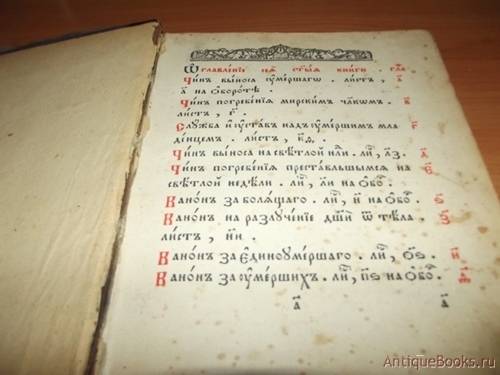 Ѿглавле́нїе сея̀ ст҃ы́я кни́ги . гла̀
Чи́нъ вы́носа ᲂу҆ме́ршагѡ . ли́стъ , а҃
а҃ на ѻ҆боро́тѣ .
Чи́нъ погребе́нїѧ мирски́мъ чл҃вкомъ . в҃
ли́стъ , г҃ .
Слꙋ́жба и҆ ᲂу҆ста́въ над̾ ᲂу҆ме́ршимъ мла
де́нцемъ . ли́стъ ,
Чи́нъ вы́носа на свѣ́тлой нл҃и . ли́ , л҃з . д҃
Чи́нъ погребе́нїѧ преста́вльшымсѧ на є҃
свѣ́тлой недѣ́ли . ли́ , л҃и на ѻ҆бо́ .
Кано́нъ за болѧ́щаго . ли́ , н҃ на ѻ҆бо́ . ѕ҃
Кано́нъ на разлꙋче́нїе дш҃и́ ѿ тѣ́ла , з҃
ли́стъ , н҃и .
Кано́нъ за є҆диноуме́ршаго . ли́ , ѻ҃ѕ . и҃
Кано́нъ за ᲂу҆ме́ршихъ . ли́ , п҃ѕ на ѻ҆бо́ .
а҃ а҃
AntiqueBooks.ru